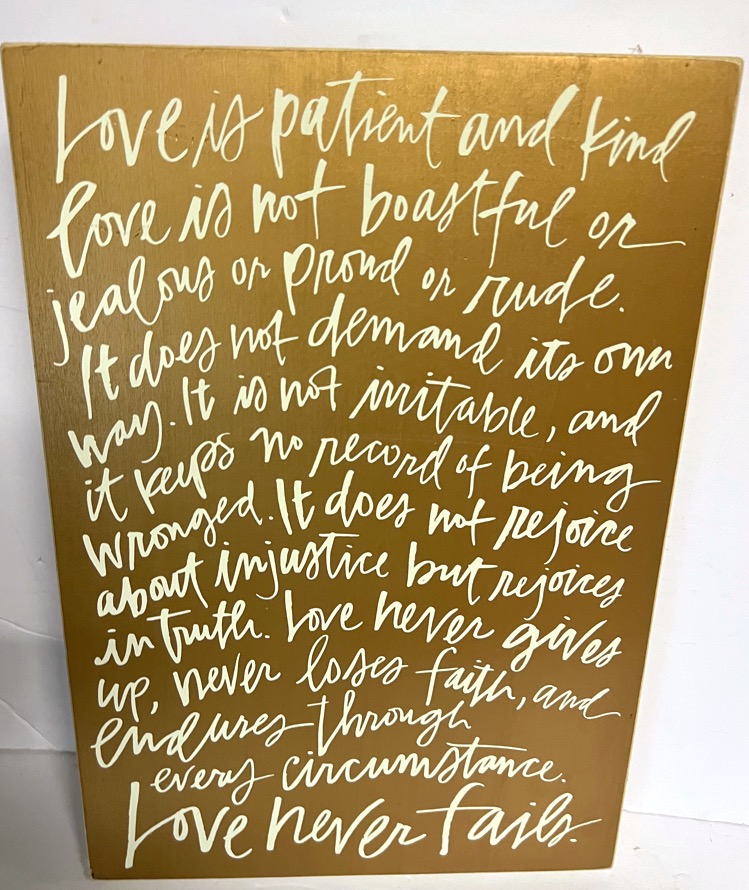 Love is patient and kind
love is not boastful or
jealous or proud or rude.
It does not demand its own
way. It is not irritable, and
it keeps no record of being
wronged. It does not rejoice
about injustice but rejoices
in truth. Love never gives
up, never loses faith, and
endures through
every circumstance.
Love never fails.